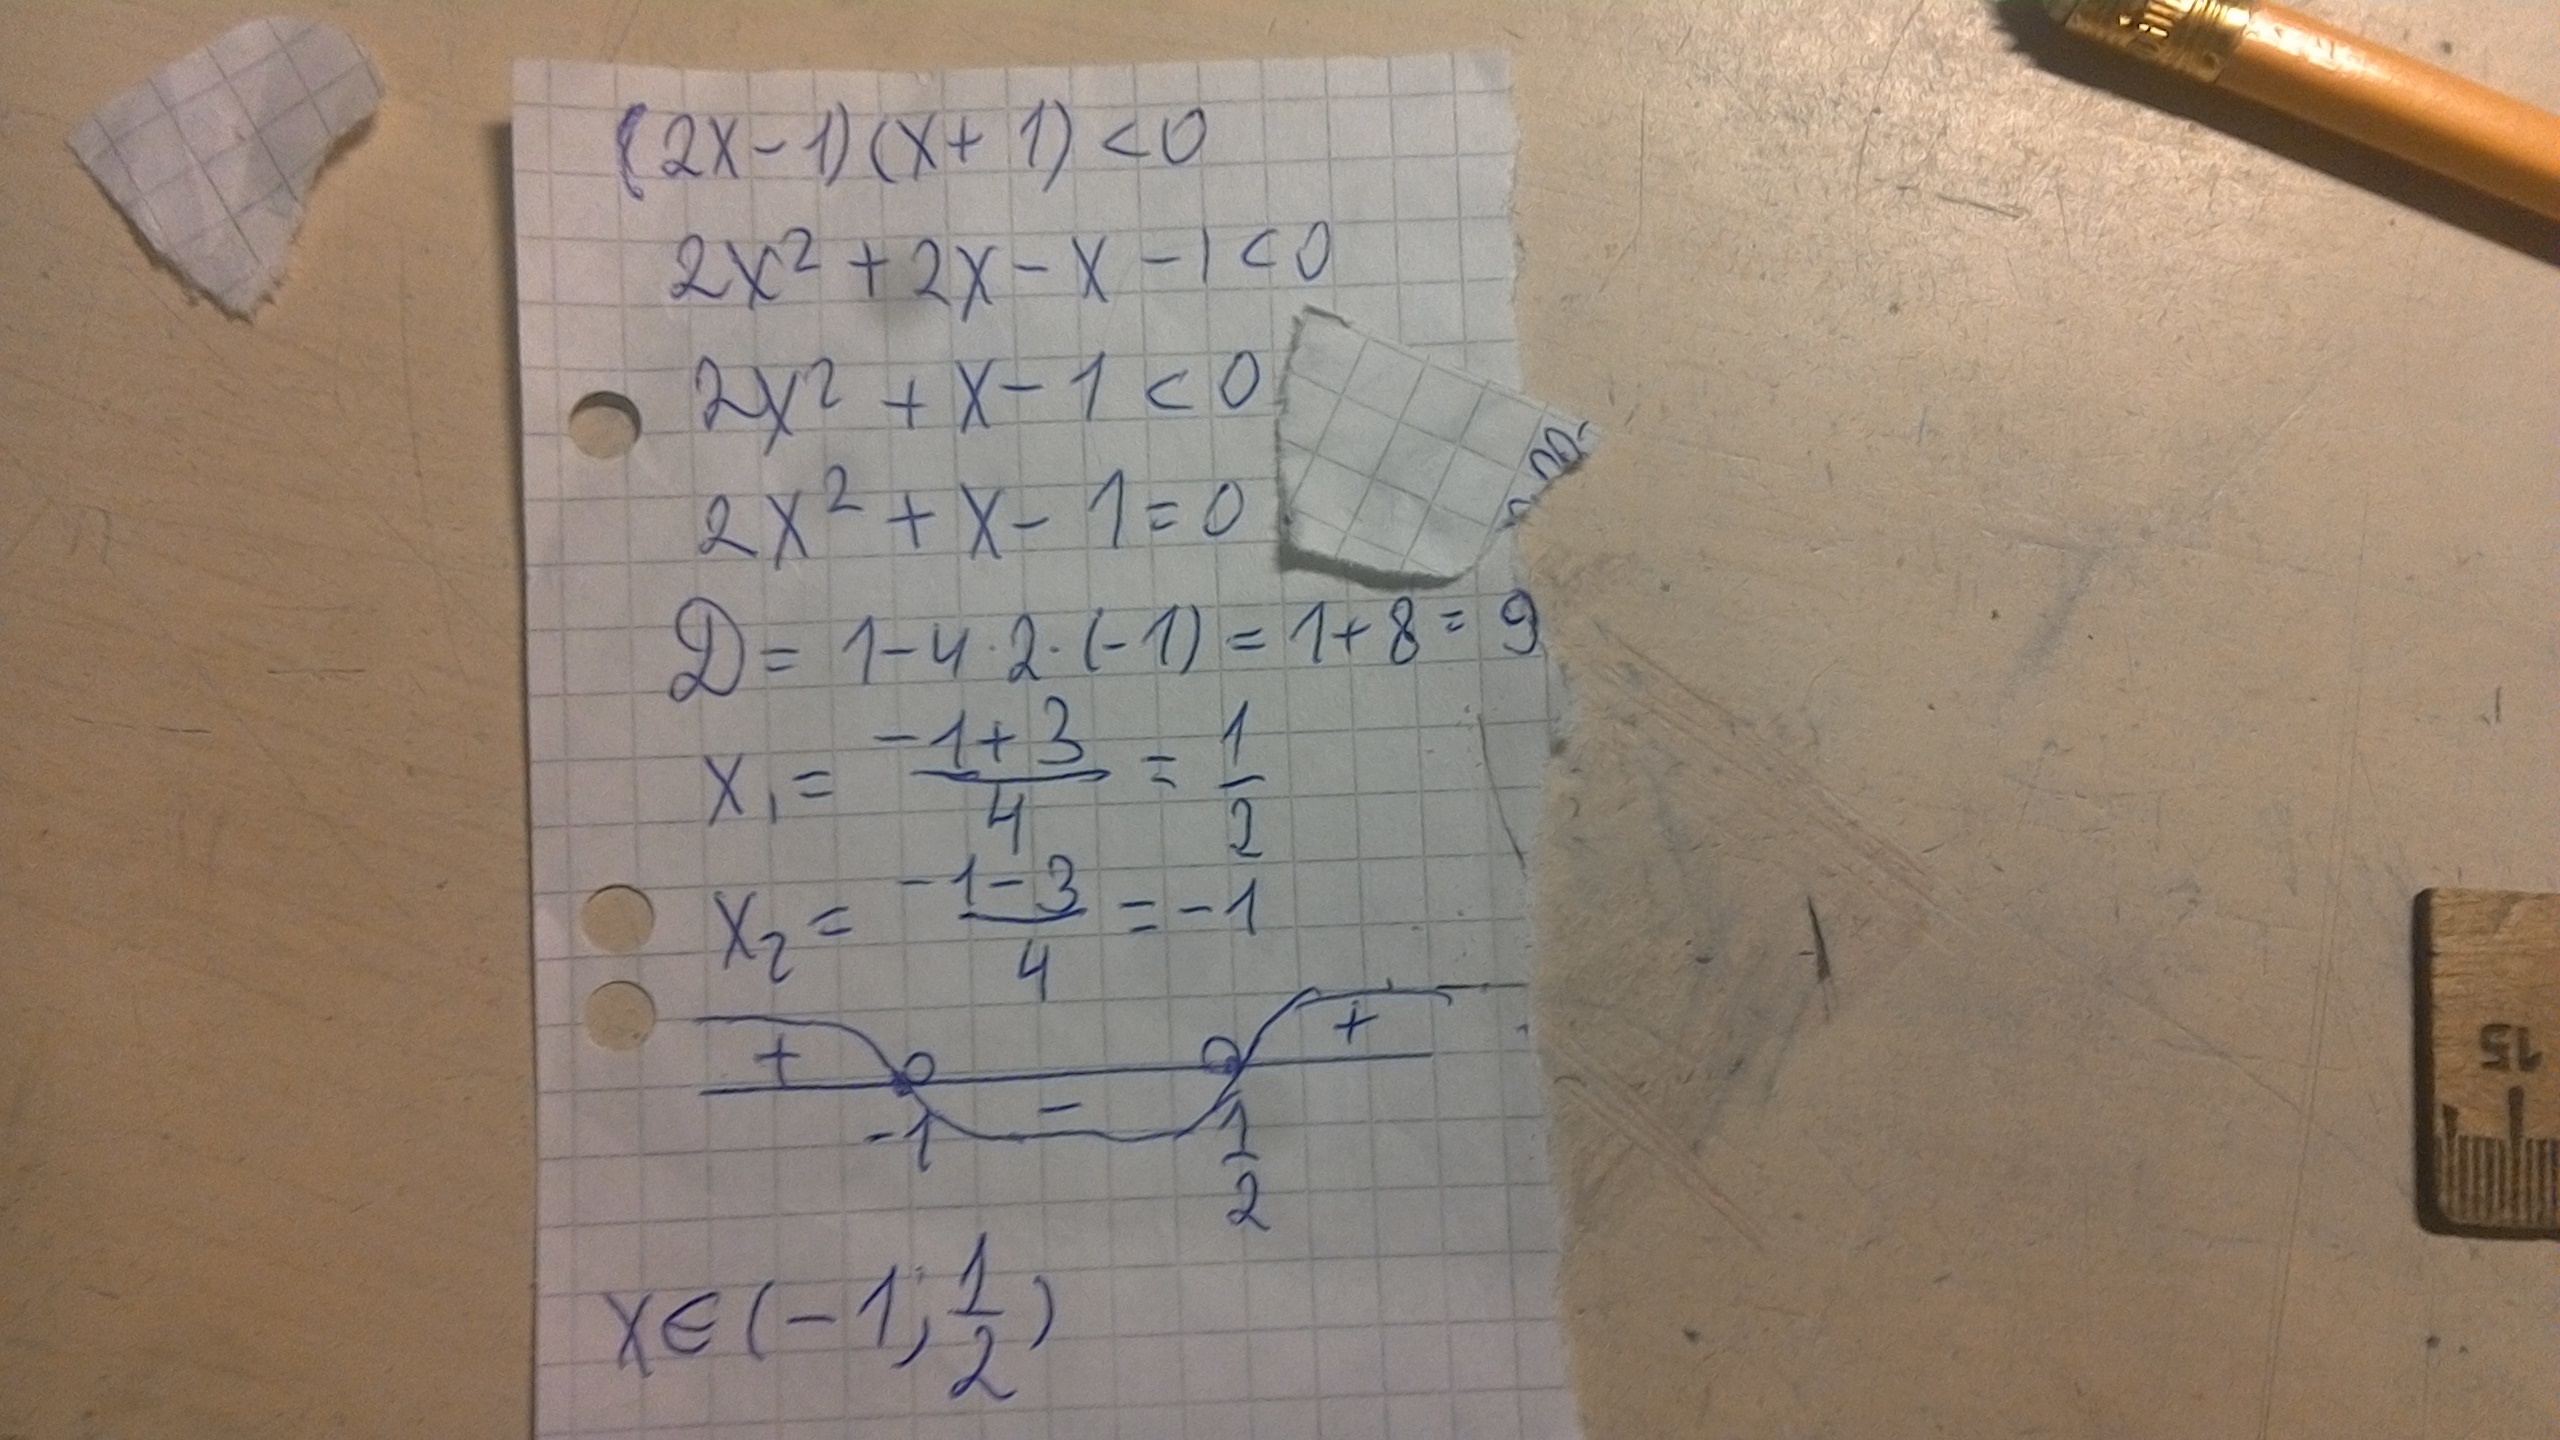 (2x-1)(x+1)<0
2x²+2x-x-1<0
2x²+x-1<0
2x²+x-1=0
D=1-4·2·(-1)=1+8=9
x₁=(-1+3)/4=1/2
x₂=(-1-3)/4=-1
+ - +
-1 1/2
x∈(-1;1/2)
15